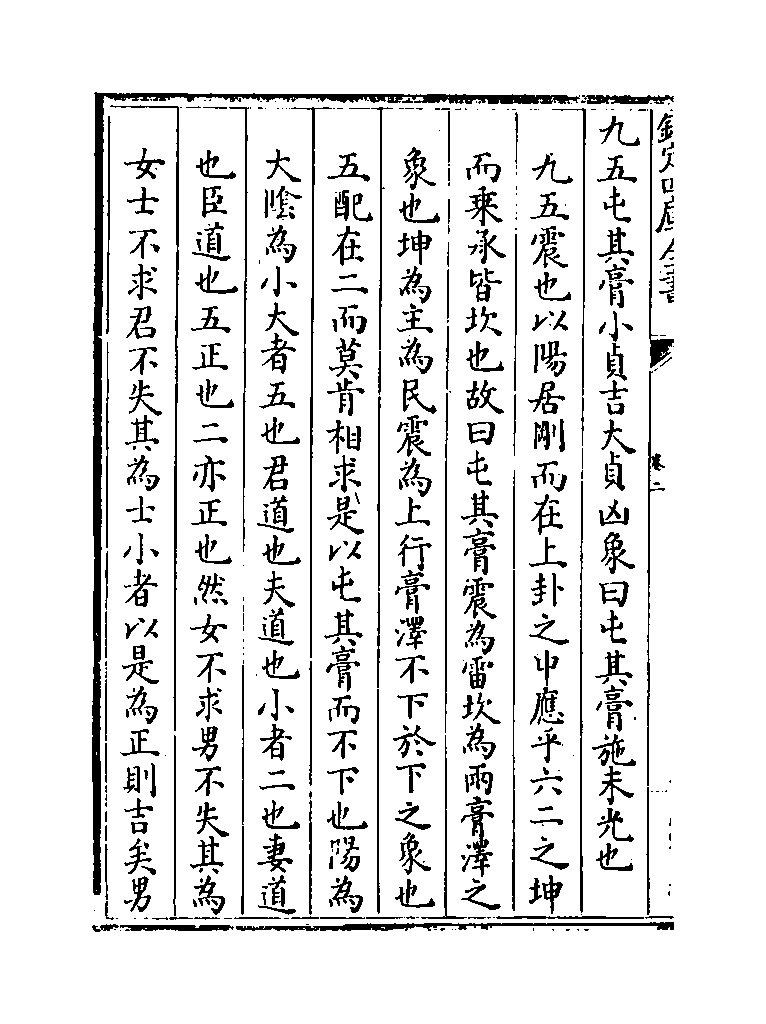 欽定四庫全書
卷二
九五屯其膏小貞吉大貞凶象曰屯其膏施未光也
九五震也以陽居剛而在上卦之中應乎六二之坤
而乘承皆坎也故曰屯其膏震為雷坎為雨膏澤之
象也坤為主為民震為上行膏澤不下於下之象也
五配在二而莫肯相求是以屯其膏而不下也陽為
大陰為小大者五也君道也夫道也小者二也妻道
也臣道也五正也二亦正也然女不求男不失其為
女士不求君不失其為士小者以是為正則吉矣男